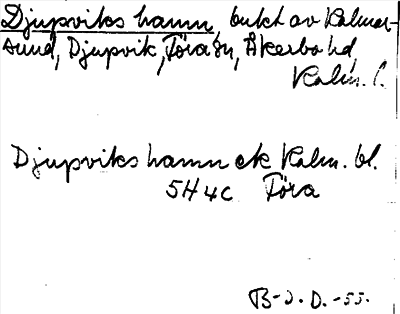 Djupvikshamn, bukt av Kalmar-
sund, Djupvik, Föra sn, Åkerbo hd,
Kalm. l.
Djupvikshamn ek Kalm. bl.
5H 4c Föra
B-J. D. -55.